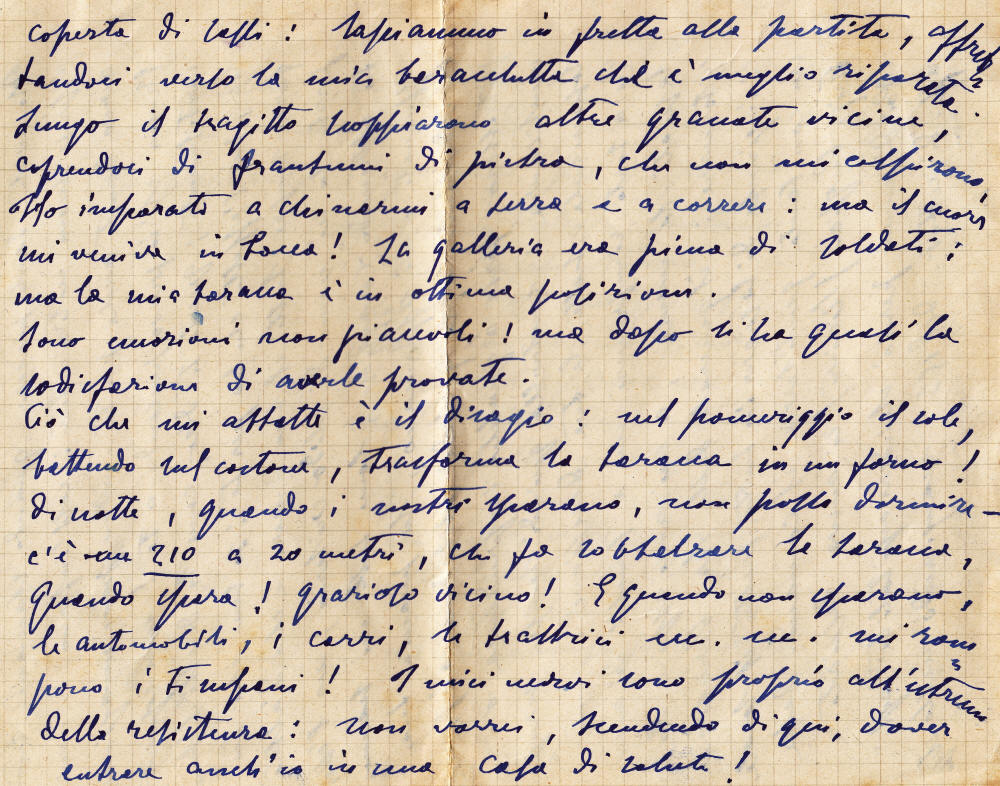 coperta di sassi: rasciammo in fretta alla partita, affret-
tandoci verso la mia baracchetta che è meglio riparata.
Lungo il tragitto scoppiarono altre granate vicine,
coprendoci di frantumi di pietra, che non mi colpirono,
Ho imparato a chinarmi a terra e a correre: ma il cuore
mi veniva in bocca! La galleria era piena di soldati;
ma la mia baracca è in ottima posizione.
Sono emozioni non piacevoli! ma dopo si ha quasi la
sodisfazione di averle provate.
Ciò che mi abbatte è il disagio: nel pomeriggio il sole,
battendo sul costone, trasforma la baracca in un forno!
di notte, quando i nostri sparano, non posso dormire –
c'è un 210 a 20 metri, che fa sobbalzare la baracca,
quando spara! grazioso vicino! E quando non sparano,
le automobili, i carri, le trattrici ecc. ecc. mi rom-
pono i timpani! I miei nervi sono proprio all'estremo
della resistenza: non vorrei, scendendo di qui, dover
entrare anch'io in una casa di salute!